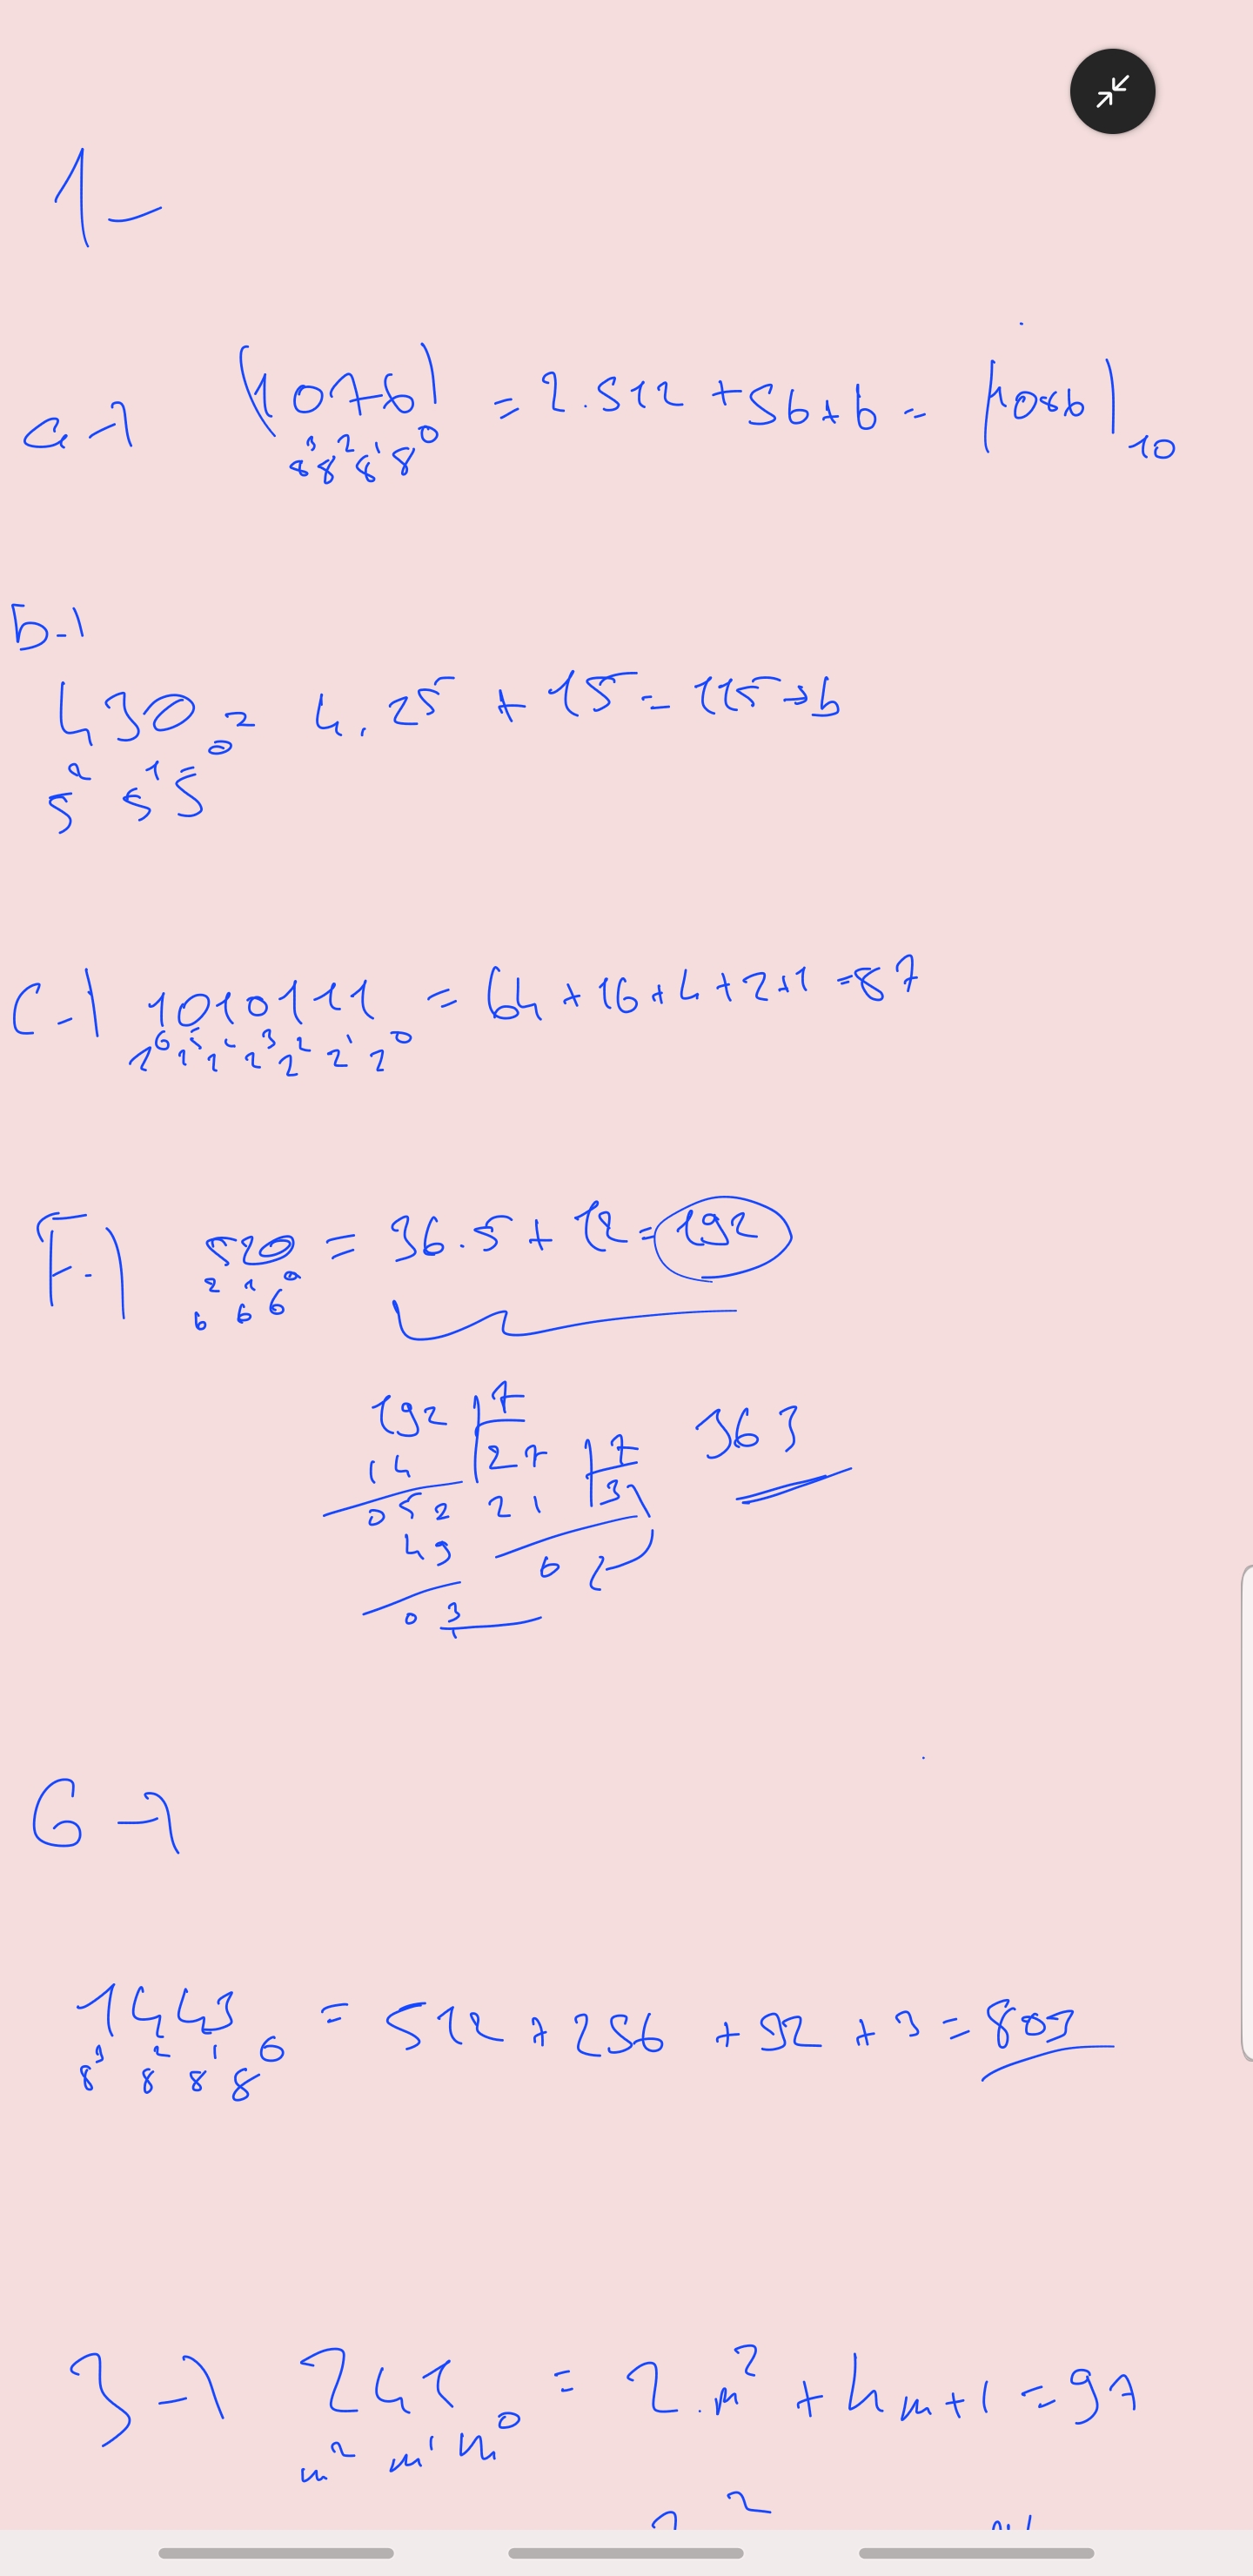 1-
a-) (1076) = 2.512 + 56 + 6 = (1086)₁₀
8³ 8² 8¹ 8⁰
b-)
430 = 4.25 + 15 = 115 → b
5² 5¹ 5⁰
C-) 1010111 = 64 + 16 + 4 + 2 + 1 = 87
2⁶ 2⁵ 2⁴ 2³ 2² 2¹ 2⁰
F-) 520 = 36.5 + 12 = 192
6² 6¹ 6⁰
192 | 7
14 | 27 | 7 363
052 21 | 3
49 6
03
G-)
1443 = 512 + 256 + 32 + 3 = 803
8³ 8² 8¹ 8⁰
3-) 241 = 2.m² + 4m + 1 = 97
m² m¹ m⁰